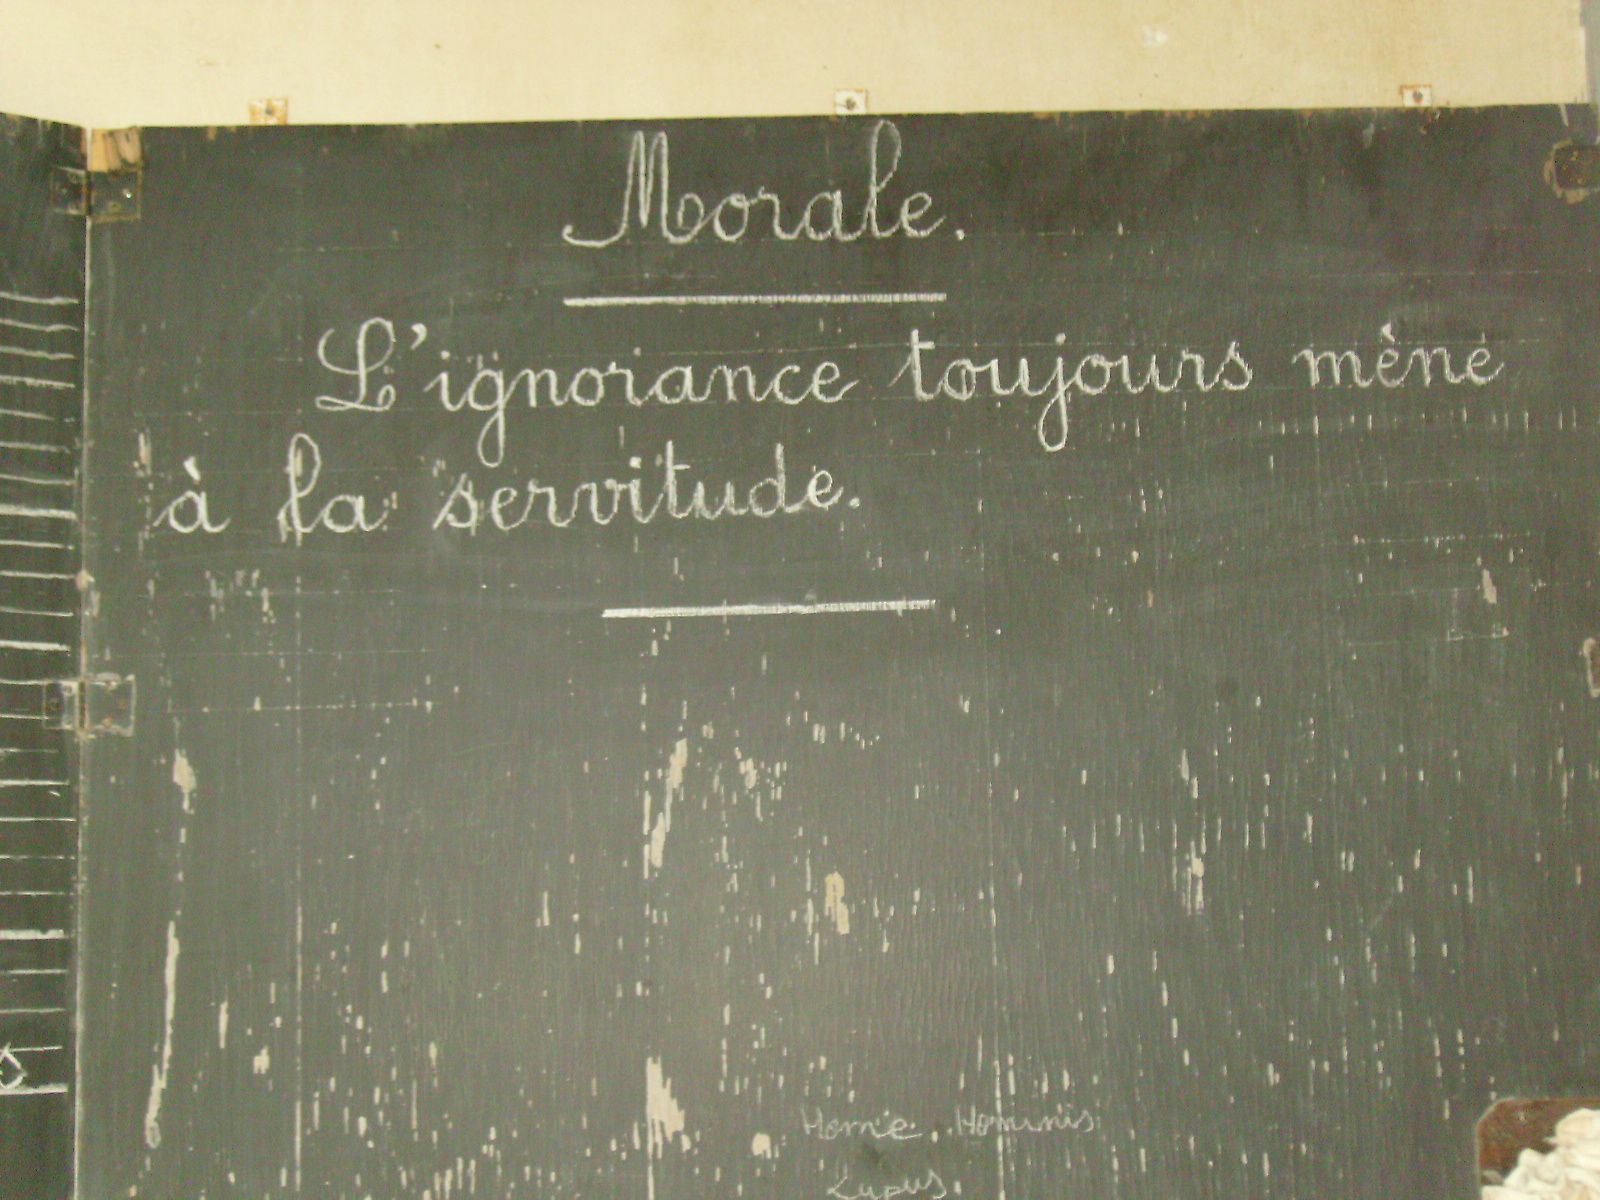 Morale.
L'ignorance toujours mène
à la servitude.
Home Hominis
Lupus